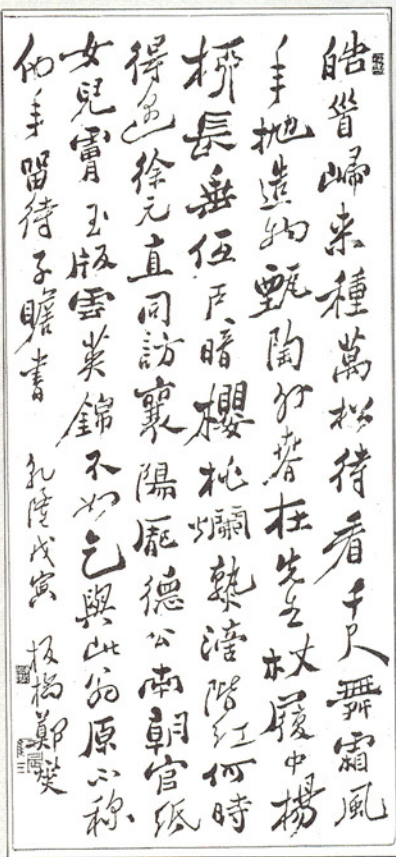 皓首歸来種萬松待看千尺舞霜風
年抛造物甄陶外春在先生杖屨中楊
柳長垂低戶暗櫻桃爛熟滴階紅何時
得徐元直同訪襄陽龐德公南朝官紙
女兒膚玉版雲英錦不如乞與此翁原不称
他年留待子瞻書 乾隆戊寅 板橋鄭燮